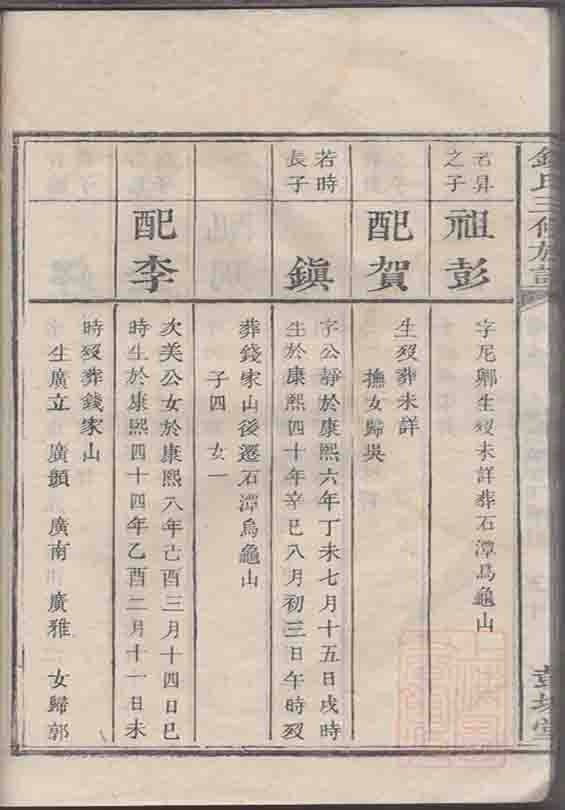 錢氏三修族譜
若昇
之子
祖彭
字尼卿生歿未詳葬石潭烏龜山
配賀
生歿葬未詳
撫女歸吳
若時
長子
鎮
字公靜於康熙六年丁未七月十五日戌時
生於康熙四十年辛巳八月初三日午時歿
葬錢家山後遷石潭烏龜山
子四 女一
配李
次美公女於康熙八年己酉三月十四日巳
時生於康熙四十四年乙酉二月十一日未
時歿葬錢家山
生廣立 廣顯 廣南 廣雅 女歸郭
彭城堂